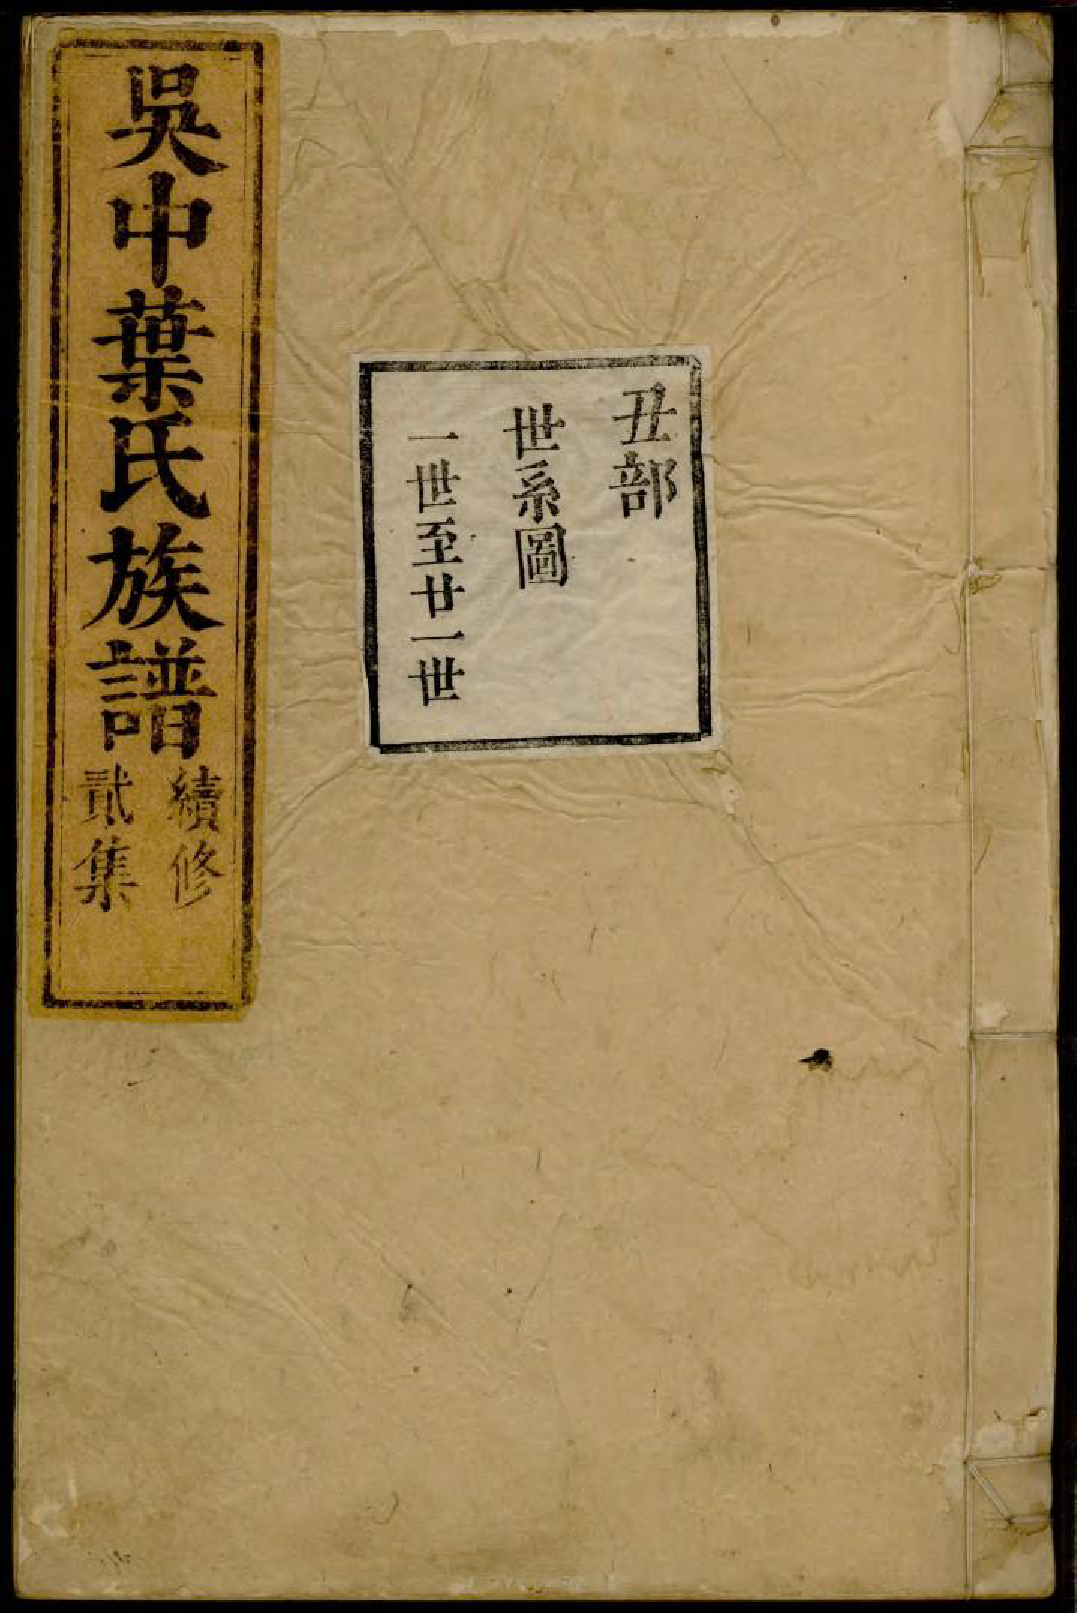 丑部
世系圖
一世至廿一世
吳中葉氏族譜
續修
貳集